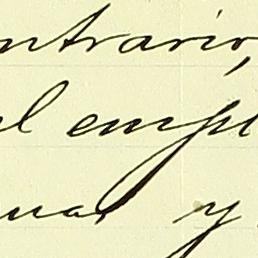 ntrario,
el empl
nas y